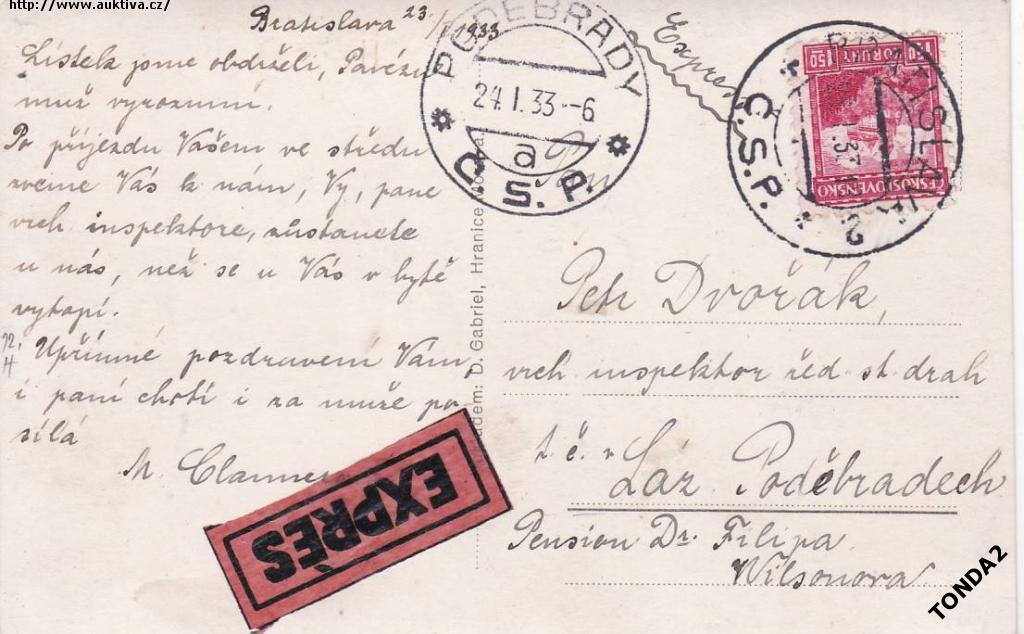 http://www.auktiva.cz/
Bratislava 23/I 1933
Lístek jsme obdrželi,
muž vyrozumí.
Po příjezdu Vašem ve středu
zveme Vás k nám, Vy, pane
vrch inspektore, zůstanete
u nás, než se u Vás v bytě
vytopí.
Upřímné pozdravení Vám,
i paní choti i za muže po-
sílá
M.
EXPRÈS
PODĚBRADY
24.I.33.-6
a
Č.S.P.
Expres
BRATISLAVA 2
Č.S.P.
1.50 1.50
ČESKOSLOVENSKO
D. Gabriel, Hranice
Petr Dvořák,
vrch inspektor řed st. drah
t. č.
Láz. Poděbradech
Pension Dr. Filipa
Wilsonova
TONDA2